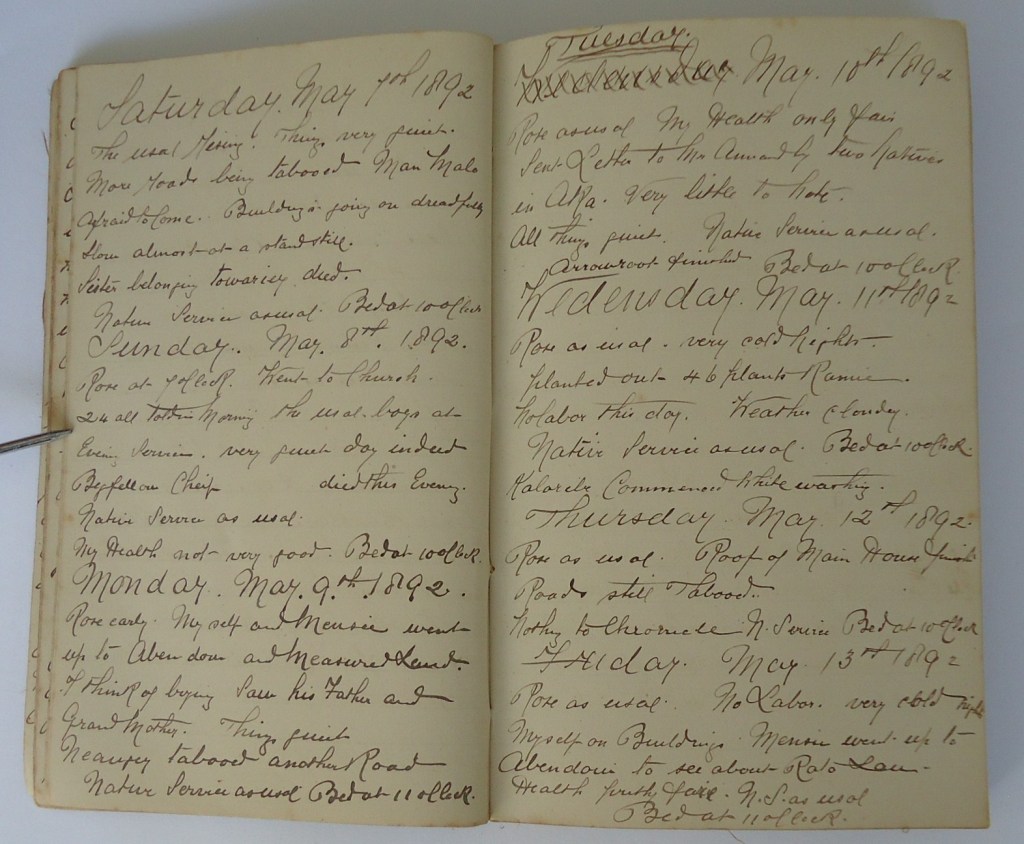 Saturday. May 7th 1892
The usal Rising. Things very quiet.
More roads being tabooed Man Malo
Afraid to Come. Building is going on dreadfully
Slow almost at a stand still.
Sister belonging towarisy died.
Native Service as usal. Bed at 10 oClock
Sunday. May. 8th. 1892.
Rose at 7 oClock. Went to Church.
24 all told in Morning the usal boys at
Evening Service. very quiet day indeed
Begfellow Chief died this Evening.
Native Service as usal.
My Health not very good. Bed at 10 oClock.
Monday. May. 9th. 1892.
Rose early. My self and Mensie went
up to Abendoui and Measured Land.
I think of buying Saw his Father and
Grand Mother. Things quiet
Neaupsy tabooed another Road
Native Service as usal Bed at 11 oClock.
Tuesday.
May. 10th 1892
Rose as usal My Health only fair
Sent Letter to Mr Annand by two Natives
in Aka. Very little to note.
All things quiet. Native Service as usal.
Arrowroot finished Bed at 10 oClock.
Wedensday. May. 11th 1892
Rose as usal. very cold nights.
planted out 46 plants Ramie.
No labor this day. Weather cloudy.
Native Service as usal. Bed at 10 oClock
Commenced White washing.
Thursday. May. 12th 1892.
Rose as usal. Roof of Main House finish
Roads still Tabooed.
Nothing to Chronicle N. Service Bed at 10 oClock
Friday. May 13th 1892
Rose as usal. No Labor. very cold night
Myself on Buildings. Mensie went up to
Abendoui to see about Rato Lau
Health pretty fair. N.S. as usal
Bed at 11 oClock.